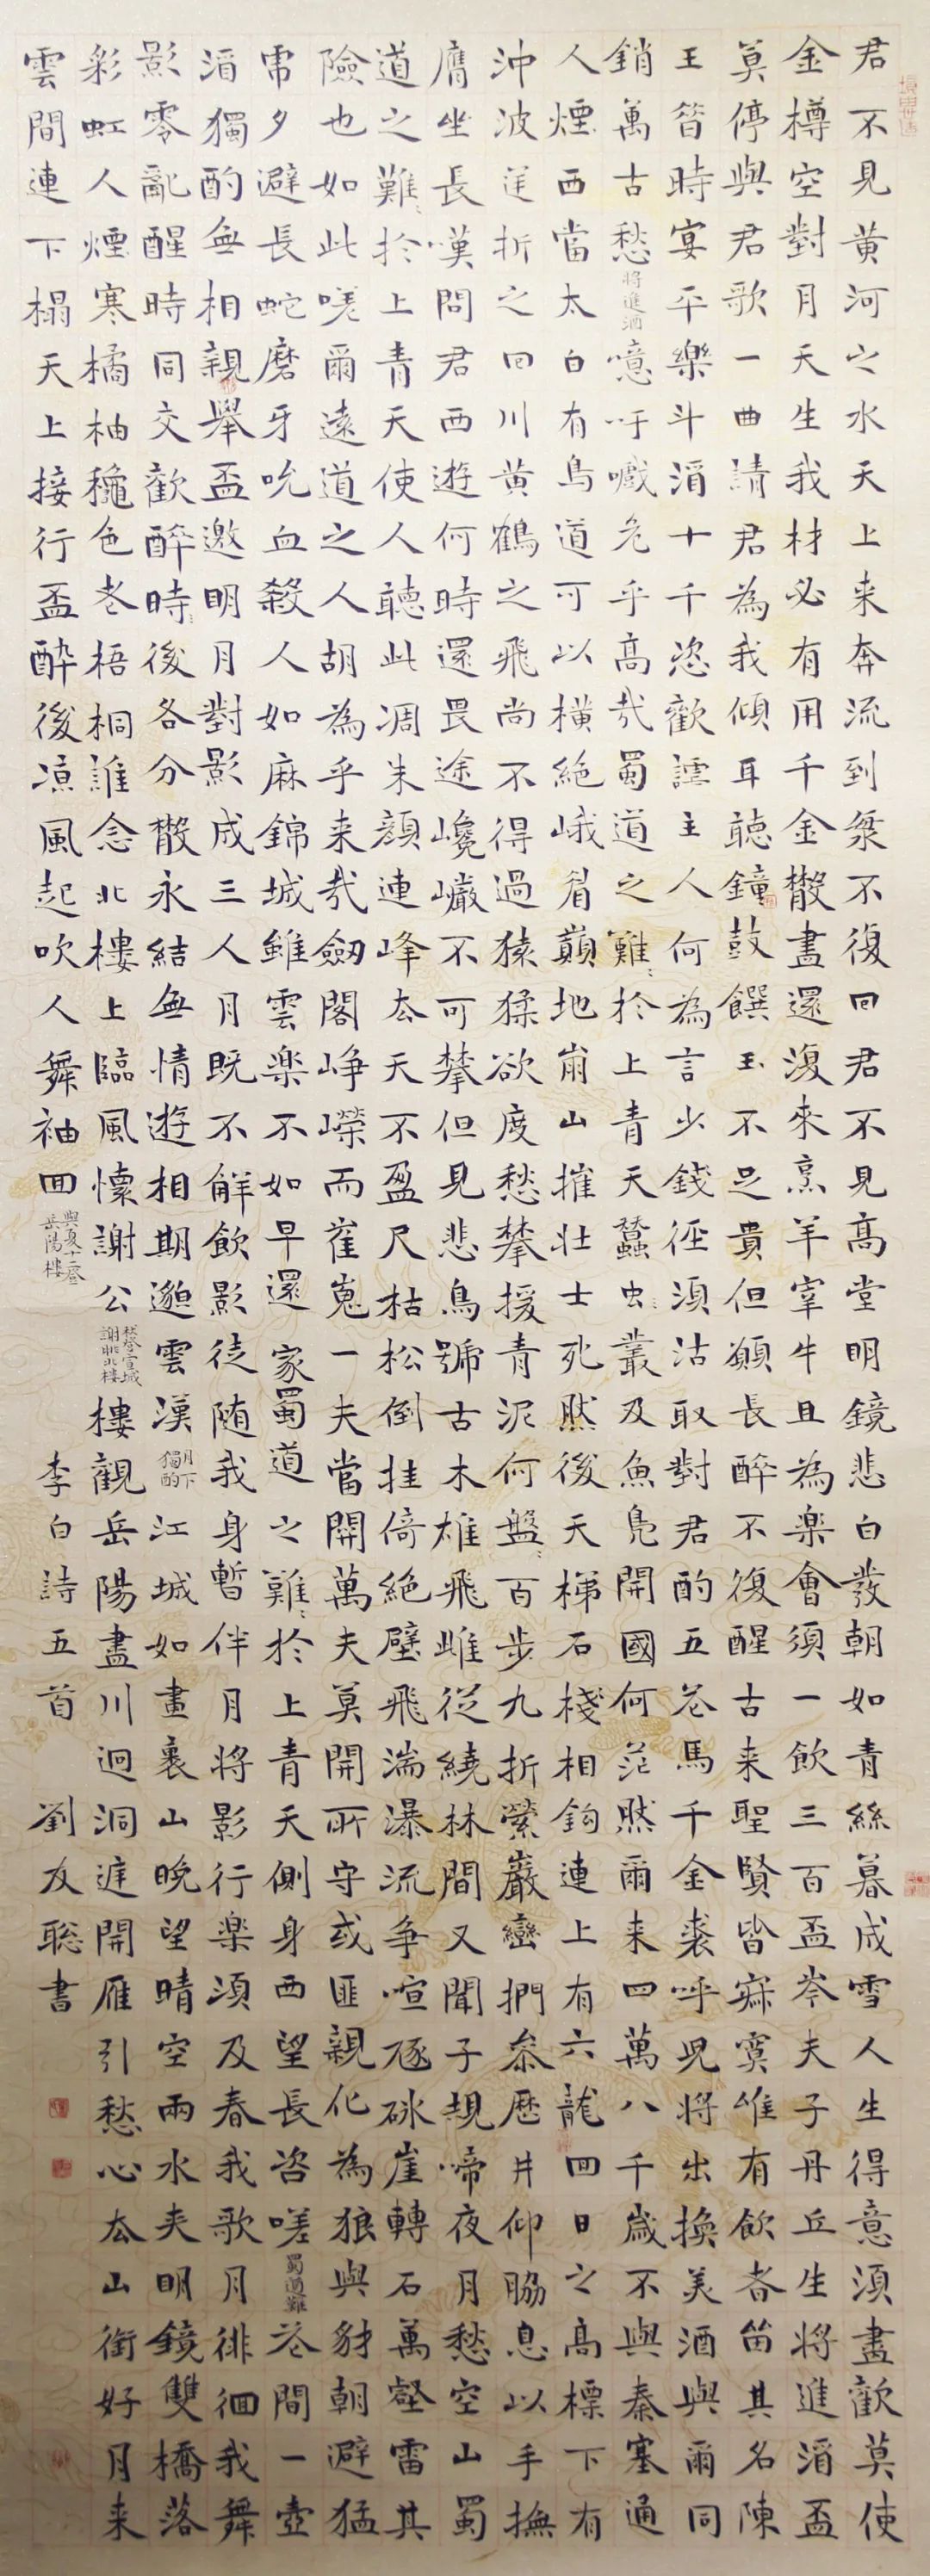 君不見黄河之水天上来奔流到海不復回君不見高堂明鏡悲白發朝如青絲暮成雪人生得意須盡歡莫使
金樽空對月天生我材必有用千金散盡還復來烹羊宰牛且為楽會須一飲三百盃岑夫子丹丘生將進酒盃
莫停與君歌一曲請君為我傾耳聴鐘鼓饌玉不足貴但願長醉不復醒古来聖賢皆寂寞惟有飲者留其名陳
王昔時宴平樂斗酒十千恣歡謔主人何為言少錢徑須沽取對君酌五花馬千金裘呼児將出換美酒與爾同
銷萬古愁 将進酒 噫吁嚱危乎髙哉蜀道之難:於上青天蠶虫:叢及魚鳧開國何茫然爾来四萬八千歲不與秦塞通
人煙西當太白有鳥道可以橫絶峨眉巔地崩山摧壮士死然後天梯石棧相鉤連上有六龍回日之高標下有
沖波逆折之回川黄鶴之飛尚不得過猿猱欲度愁攀援青泥何盤:百步九折縈巖巒捫叅歷井仰脇息以手撫
膺坐長嘆問君西遊何時還畏途巉巖不可攀但見悲鳥號古木雄飛雌從繞林間又聞子規啼夜月愁空山蜀
道之難:於上青天使人聴此凋朱顔連峰去天不盈尺枯松倒挂倚絶壁飛湍瀑流争喧豗砅崖轉石萬壑雷其
險也如此嗟爾遠道之人胡為乎来哉劔閣崢嶸而崔嵬一夫當開萬夫莫開所守或匪親化為狼與豺朝避猛
虎夕避長蛇磨牙吮血殺人如麻錦城雖雲楽不如早還家蜀道之難:於上青天側身西望長咨嗟 蜀道難 花間一壺
酒獨酌無相親舉盃邀明月對影成三人月既不解飲影徒随我身暫伴月將影行楽須及春我歌月徘徊我舞
影零亂醒時同交歡醉時:後各分散永結無情遊相期邈雲漢 月下獨酌 江城如畫裏山晩望晴空兩水夾明鏡雙橋落
彩虹人煙寒橘柚秋色老梧桐誰念北樓上臨風懷謝公 秋登宣城謝朓北樓 樓觀岳陽盡川迥洞庭開雁引愁心去山銜好月来
雲間連下榻天上接行盃醉後凉風起吹人舞袖回 與夏十二登岳陽樓 李白詩五首 劉友聡書